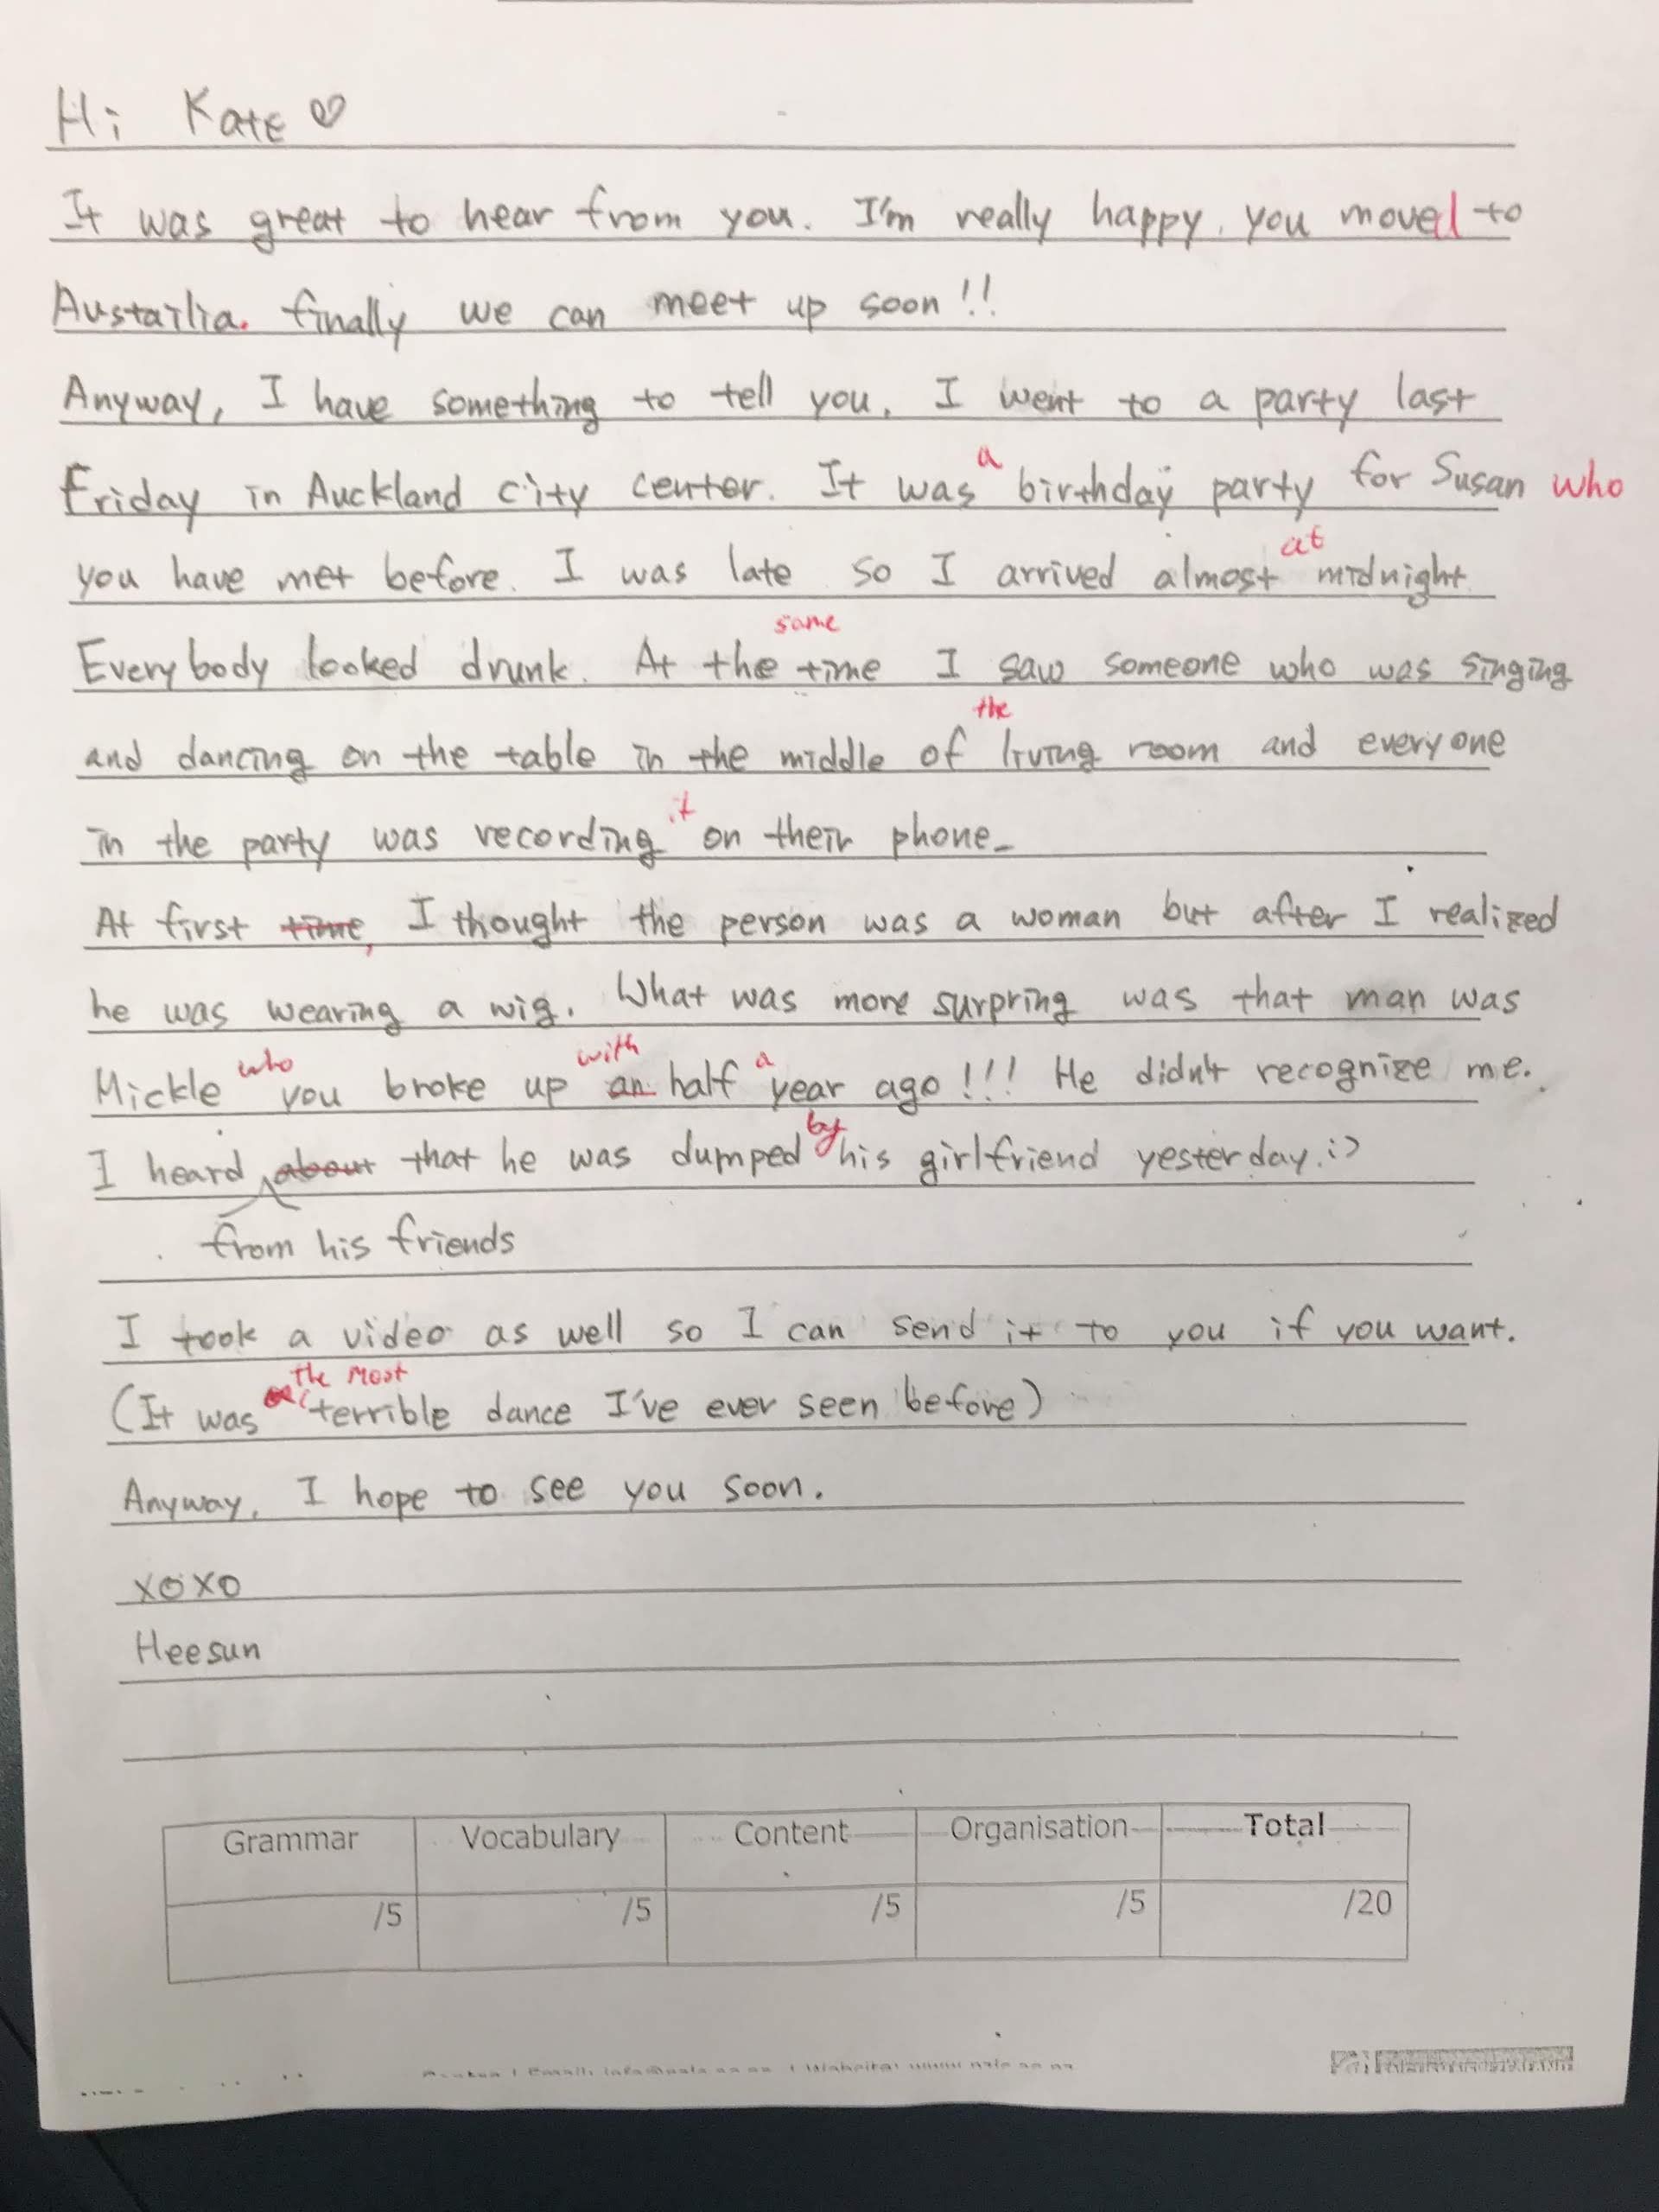 Hi Kate ♡
It was great to hear from you. I'm really happy, you moved to
Austailia. finally we can meet up soon!!
Anyway, I have something to tell you. I went to a party last
a
Friday in Auckland city center. It was birthday party for Susan who
at
you have met before. I was late so I arrived almost midnight.
same
Everybody looked drunk. At the time I saw someone who was singing
the
and dancing on the table in the middle of living room and everyone
it
in the party was recording on their phone.
At first time, I thought the person was a woman but after I realized
he was wearing a wig. What was more surpring was that man was
who with a
Mickle you broke up an half year ago!!! He didn't recognize me.
by
I heard about that he was dumped his girlfriend yesterday. :)
from his friends
I took a video as well so I can send it to you if you want.
the most
(It was terrible dance I've ever seen before)
Anyway, I hope to see you soon.
xoxo
Heesun
Grammar Vocabulary Content Organisation Total
/5 /5 /5 /5 /20